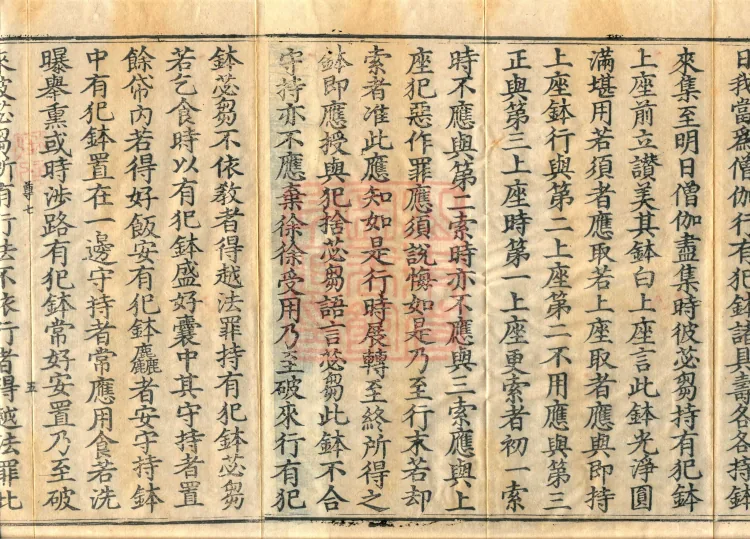 日我當爲僧伽行有犯鉢諸具壽各各持鉢
來集至明日僧伽盡集時彼苾芻持有犯鉢
上座前立讃美其鉢白上座言此鉢光淨圓
滿堪用若須者應取若上座取者應與即持
上座鉢行與第二上座第二不用應與第三
正與第三上座時第一上座更索者初一索
時不應與第二索時亦不應與三索應與上
座犯惡作罪應須說悔如是乃至行末若却
索者准此應知如是行時展轉至終所得之
鉢即應授與犯捨苾芻語言苾芻此鉢不合
守持亦不應棄徐徐受用乃至破來行有犯
鉢苾芻不依教者得越法罪持有犯鉢苾芻
若乞食時以有犯鉢盛好囊中其守持者置
餘帒內若得好飯安有犯鉢麤者安守持鉢
中有犯鉢置在一邊守持者常應用食若洗
曝舉熏或時涉路有犯鉢常好安置乃至破
尊七
五
來彼苾芻所有行法不依行者得越法罪此